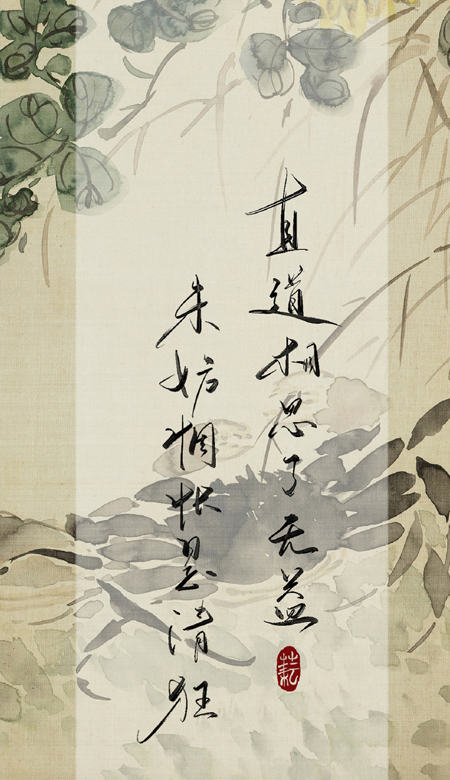 直道相思了无益
未妨惆怅是清狂
耘